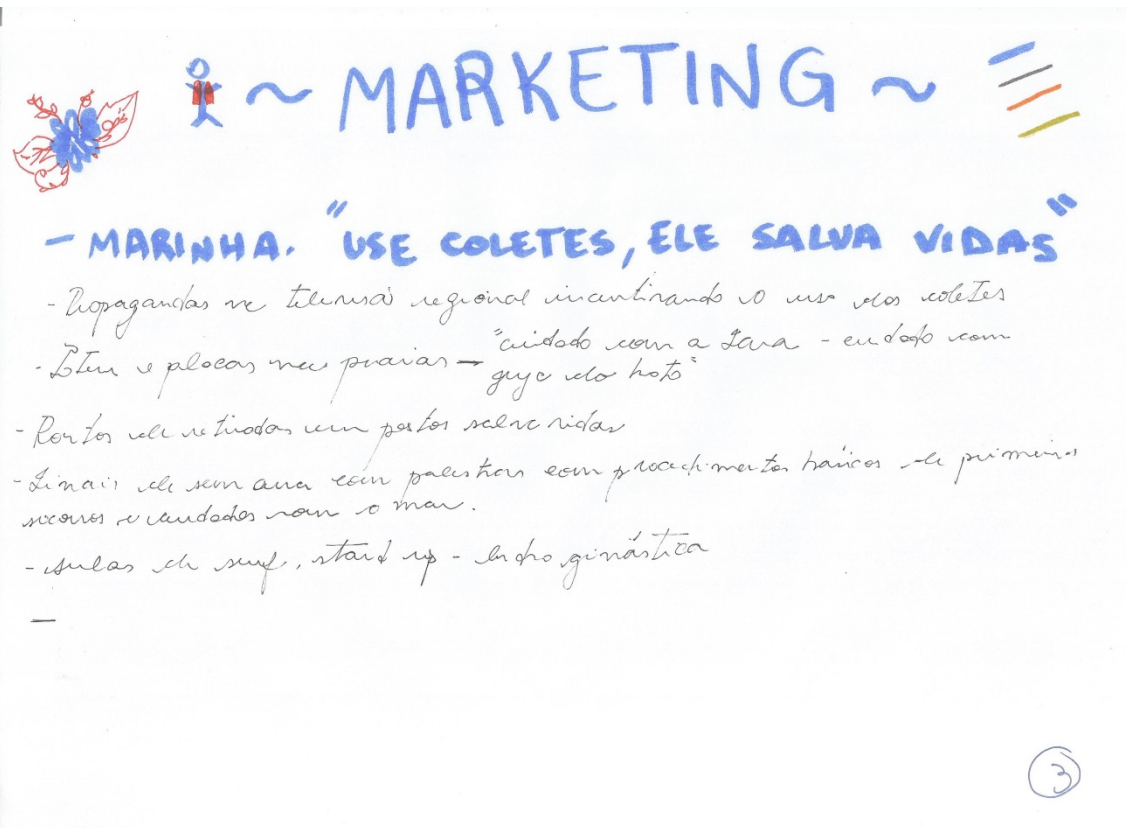 ~ MARKETING ~
- MARINHA. "USE COLETES, ELE SALVA VIDAS"
- Propagandas na televisão regional incentivando o uso dos coletes
e placas nas praias - "cuidado com a Iara - cuidado com
do boto"
- Pontos de retiradas em postos salva vidas
- Finais de semana com palestras com procedimentos básicos de primeiros
socorros e cuidados com o mar.
- Aulas de surf, stand up - hidroginástica
-
3